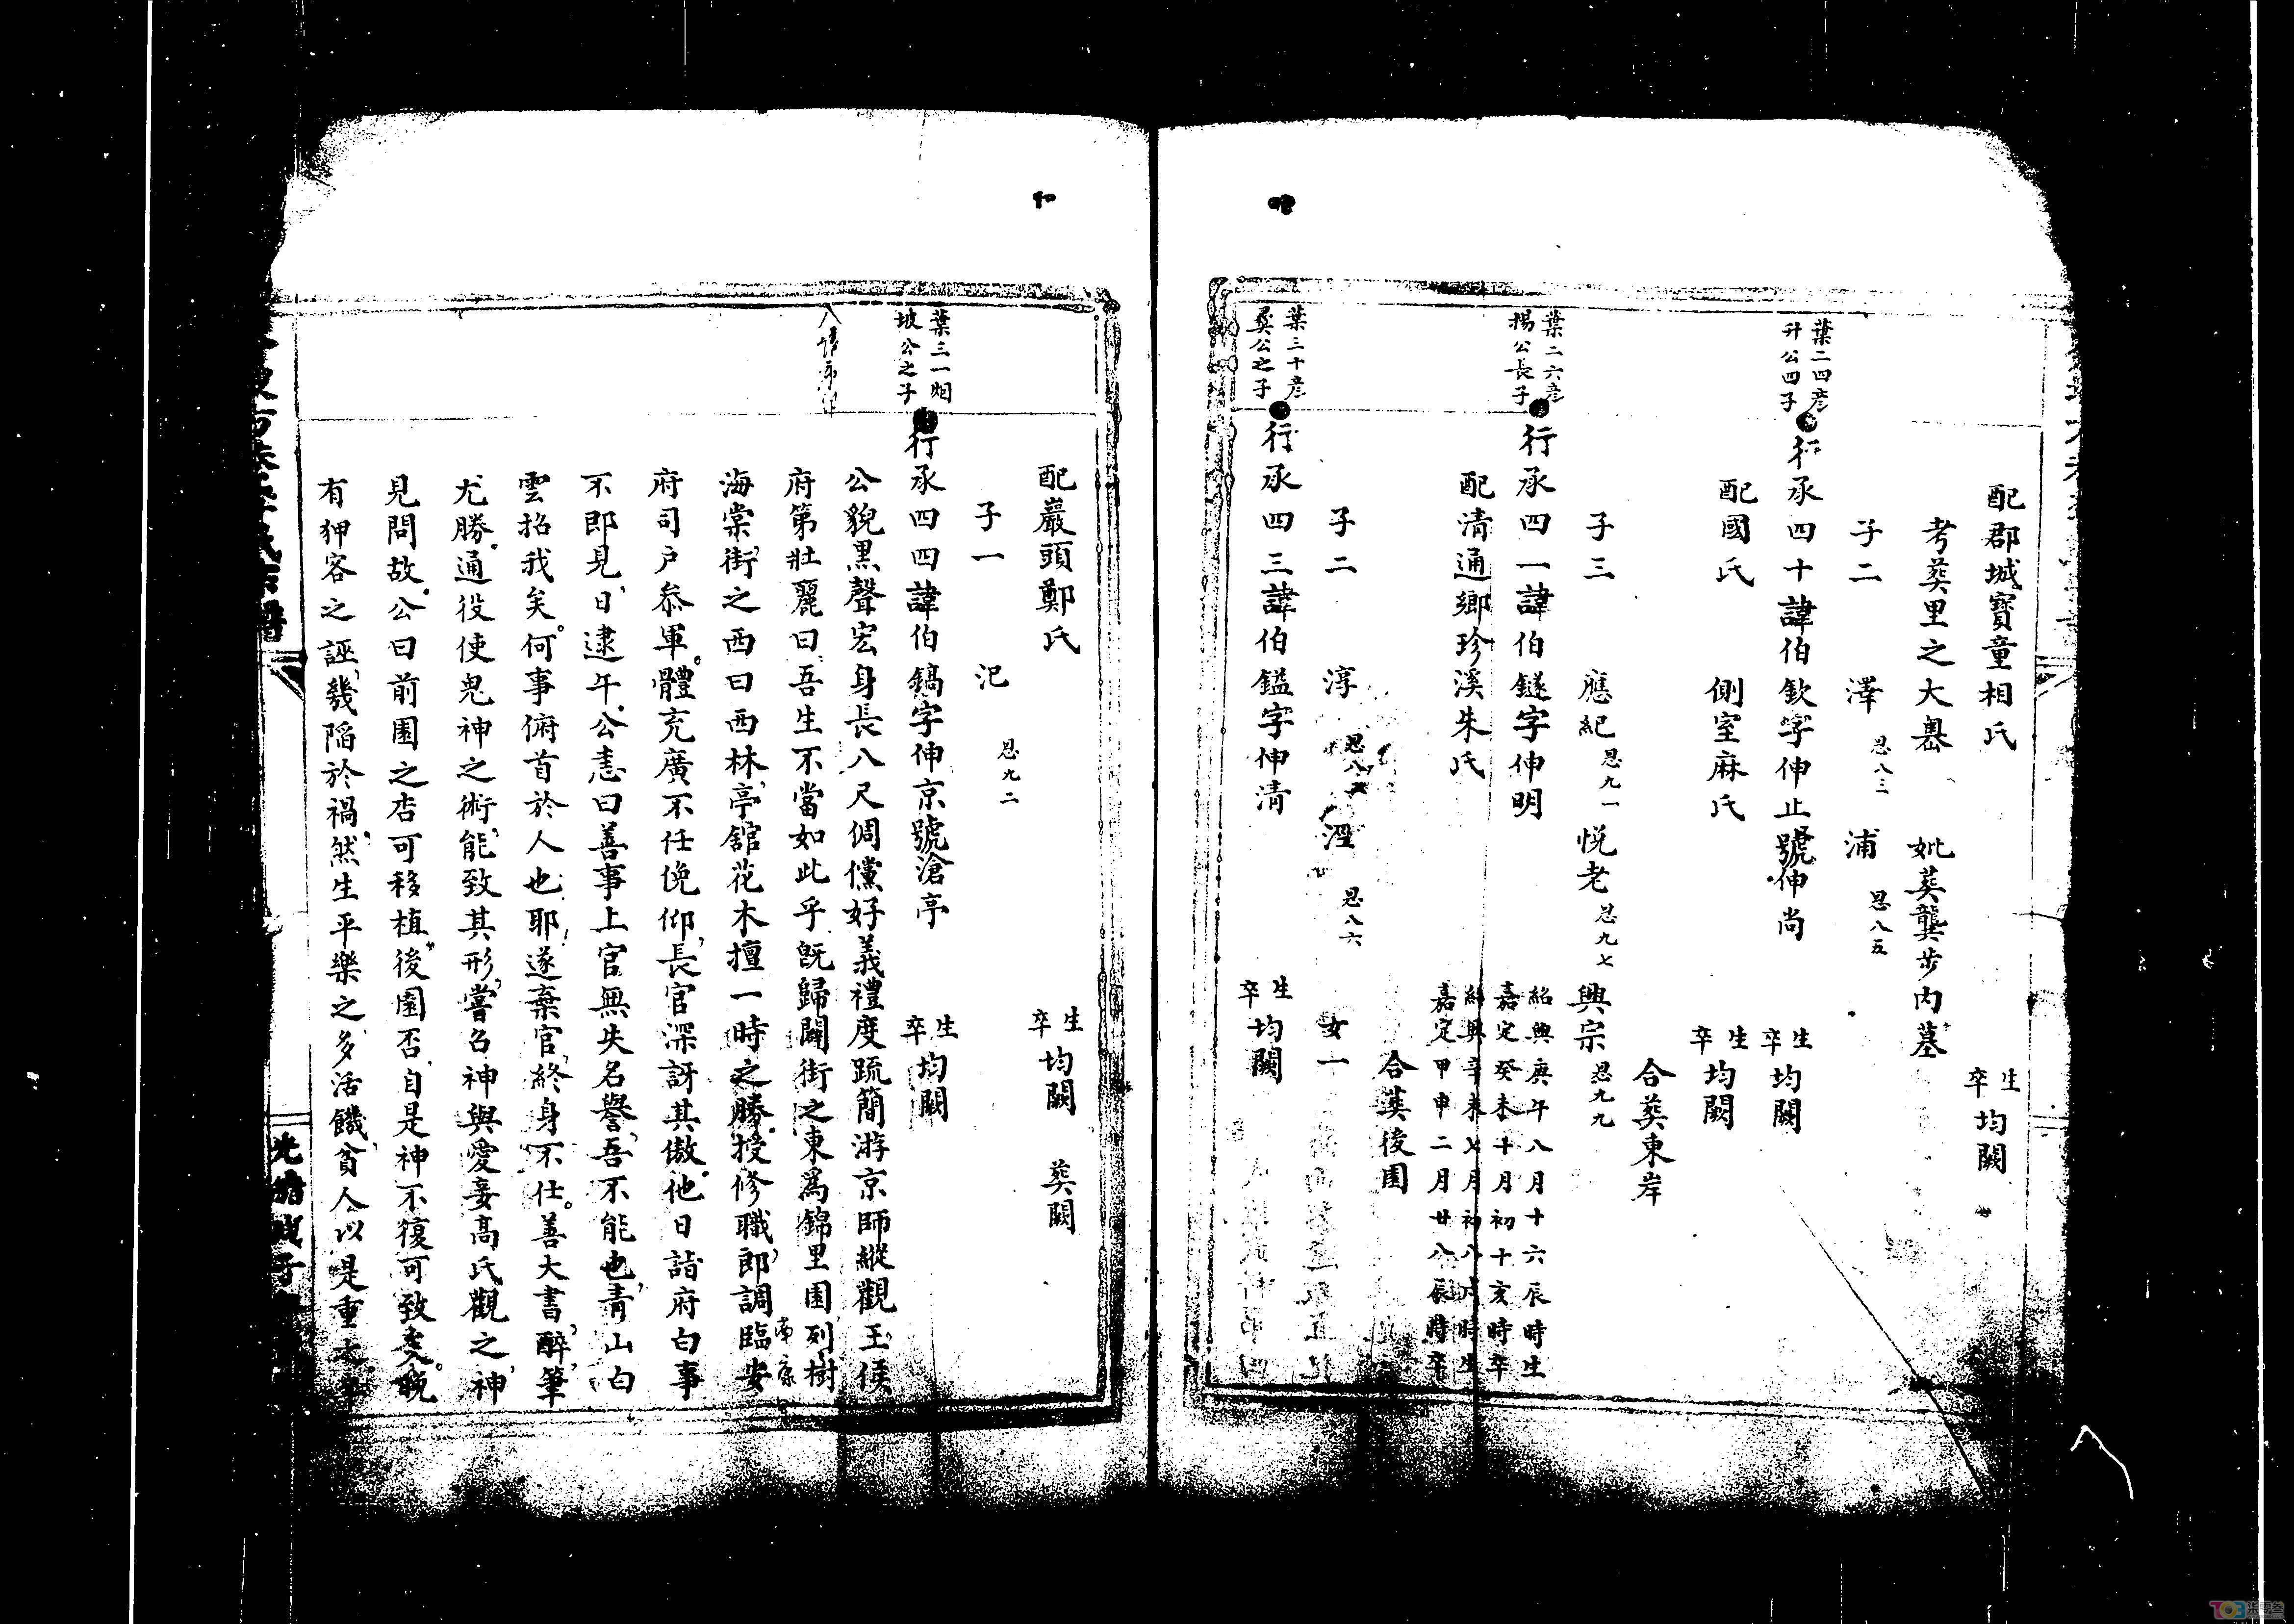 配郡城寶童相氏 生卒均闕
考葬里之大墺 妣葬龔步內墓
子二 澤 思八三 浦 思八五
葉二四彥升公四子
行承四十諱伯欽字伸止號伸尚 生卒均闕
配國氏 側室麻氏 生卒均闕
合葬東岸
子三 應紀 思九一 悅老 思九七 興宗 思九九
葉二六彥揚公長子
行承四一諱伯鐩字伸明 紹興庚午八月十六辰時生 嘉定癸未十月初十亥時卒
配清通鄉珍溪朱氏 紹興辛未七月初八戌時生 嘉定甲申二月廿八辰時卒
合葬後園
子二 淳 思八 溼 思八六 女一
葉三十彥公之子
行承四三諱伯鎰字伸清 生卒均闕
配巖頭鄭氏 生卒均闕 葬闕
子一 汜 思九二
葉三一烟坡公之子
行承四四諱伯鎬字伸京號滄亭 生卒均闕
公貌黑聲宏身長八尺倜儻好義禮度疏簡游京師縱觀王侯
府第壯麗曰吾生不當如此乎既歸闢街之東為錦里園列樹
海棠街之西曰西林亭舘花木擅一時之勝授修職郎調臨安
府司戶叅軍體充廣不任俛仰長官深訝其傲他日詣府白事
不即見日逮午公恚曰善事上官無失名譽吾不能也青山白
雲招我矣何事俯首於人也耶遂棄官終身不仕善大書醉筆
尤勝通役使鬼神之術能致其形嘗召神與愛妾高氏觀之神
見問故公曰前園之杏可移植後園否自是神不復可致矣晚
有狎客之誣幾陷於禍然生平樂之多活饑貧人以是重之